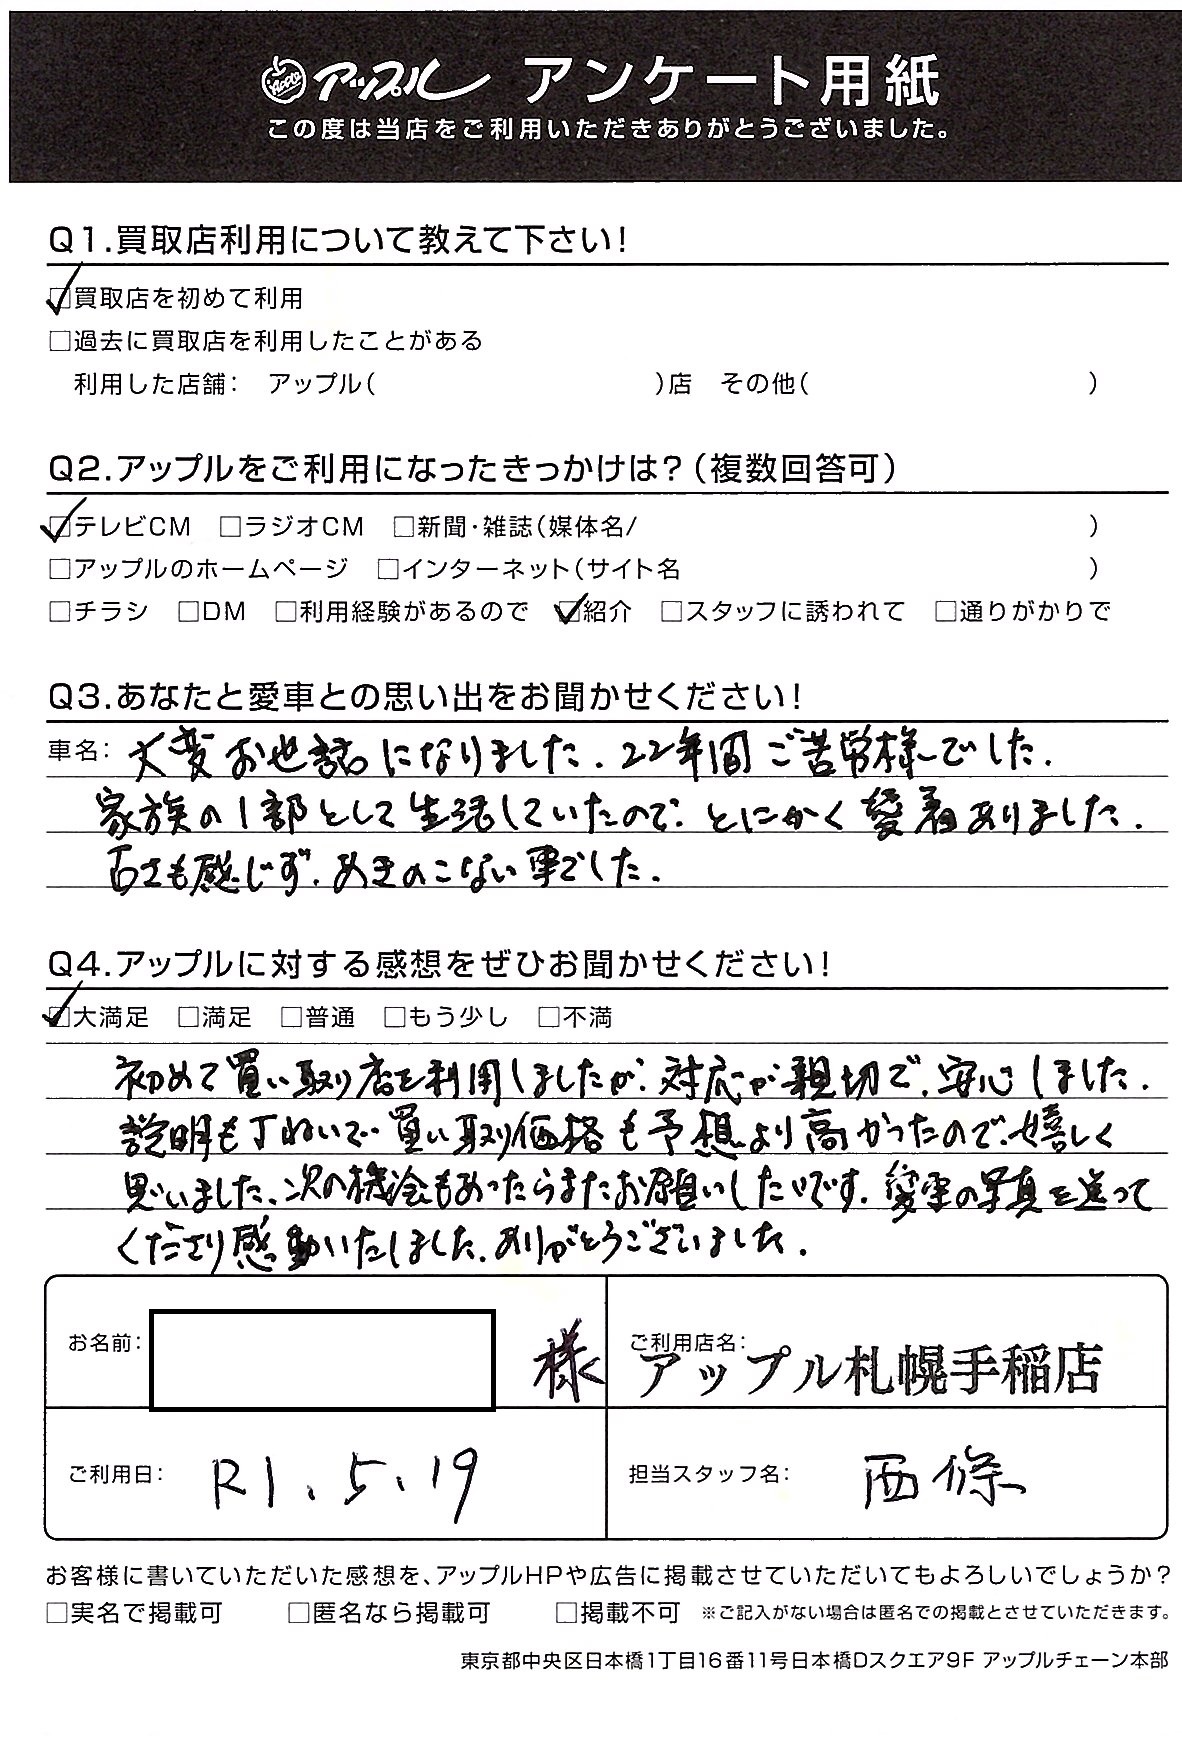 Apple アップル アンケート用紙
この度は当店をご利用いただきありがとうございました。
Q1.買取店利用について教えて下さい!
☑買取店を初めて利用
□過去に買取店を利用したことがある
利用した店舗: アップル( )店 その他( )
Q2.アップルをご利用になったきっかけは?(複数回答可)
☑テレビCM □ラジオCM □新聞・雑誌(媒体名/ )
□アップルのホームページ □インターネット(サイト名 )
□チラシ □DM □利用経験があるので ☑紹介 □スタッフに誘われて □通りがかりで
Q3.あなたと愛車との思い出をお聞かせください!
車名: 大変お世話になりました. 22年間ご苦労様でした.
家族の1部として生活していたので、とにかく愛着ありました.
古さも感じず、あきのこない車でした.
Q4.アップルに対する感想をぜひお聞かせください!
☑大満足 □満足 □普通 □もう少し □不満
初めて買い取り店を利用しましたが、対応が親切で、安心しました.
説明も丁ねいで、買い取り価格も予想より高かったので、嬉しく
思いました、次の機会もあったらまたお願いしたいです. 愛車の写真を送って
くださり感動いたしました. ありがとうございました.
お名前: 様 ご利用店名: アップル札幌手稲店
ご利用日: R1.5.19 担当スタッフ名: 西條
お客様に書いていただいた感想を、アップルHPや広告に掲載させていただいてもよろしいでしょうか?
□実名で掲載可 □匿名なら掲載可 □掲載不可 ※ご記入がない場合は匿名での掲載とさせていただきます。
東京都中央区日本橋1丁目16番11号日本橋Dスクエア9F アップルチェーン本部